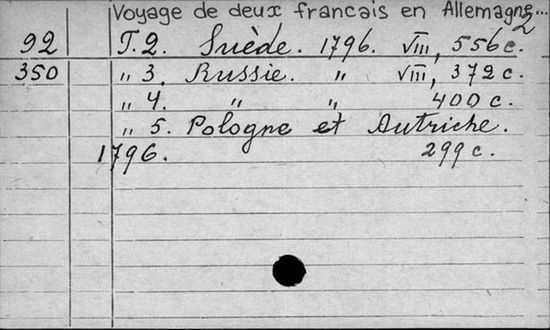 Voyage de deux francais en Allemagne... 2
92 T. 2. Suède. 1796. VIII, 556 c.
350 " 3. Russie. " VIII, 372 c.
" 4. " " 400 c.
" 5. Pologne et Autriche.
1796. 299 c.